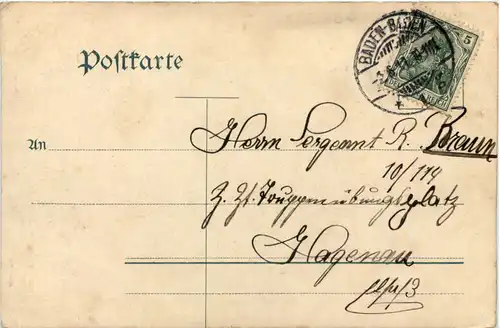 BADEN-BADEN
5
REICH
Postkarte
An
Herrn Sergeant R. Braun
10/114
z. Zt. Truppenübungsplatz
Hagenau